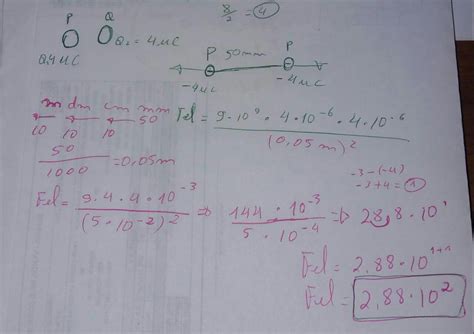 P Q 8/2 = 4
0,4 μC Q₂ = 4 μC
P 50mm P
-4 μC -4 μC
m dm cm mm
10 10 10 50
50/1000 = 0,05 m
Fel = 9·10⁹ · 4·10⁻⁶ · 4·10⁻⁶ / (0,05 m)²
-3-(-4)
-3+4 = 1
Fel = 9·4·4·10⁻³ / (5·10⁻²)² ⇒ 144·10⁻³ / 5·10⁻⁴ ⇒ 28,8·10¹
Fel = 2,88·10¹⁺¹
Fel = 2,88·10²